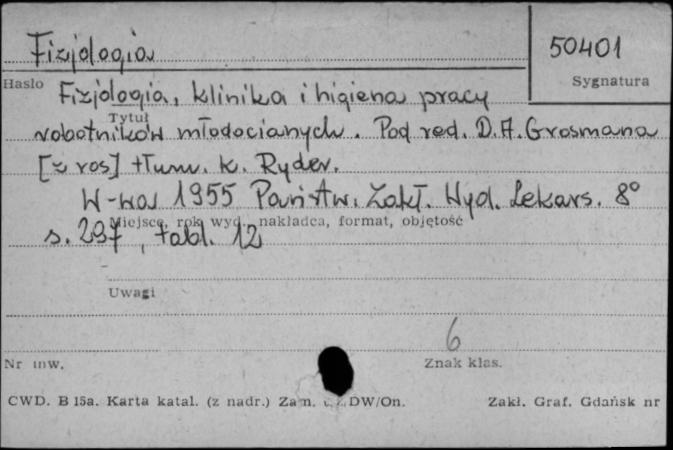 Fizjologia
50401
Hasło
Sygnatura
Fizjologia, klinika i higiena pracy
Tytuł
robotników młodocianych. Pod red. D.A. Grosmana
[z ros] tłum. K. Ryder.
W-wa 1955 Państw. Zakł. Wyd. Lekars. 8°
Miejsce, rok wyd., nakładca, format, objętość
s. 297, tabl. 12
Uwagi
6
Nr inw.
Znak klas.
CWD. B 15a. Karta katal. (z nadr.) Zam. DW/On.
Zakł. Graf. Gdańsk nr